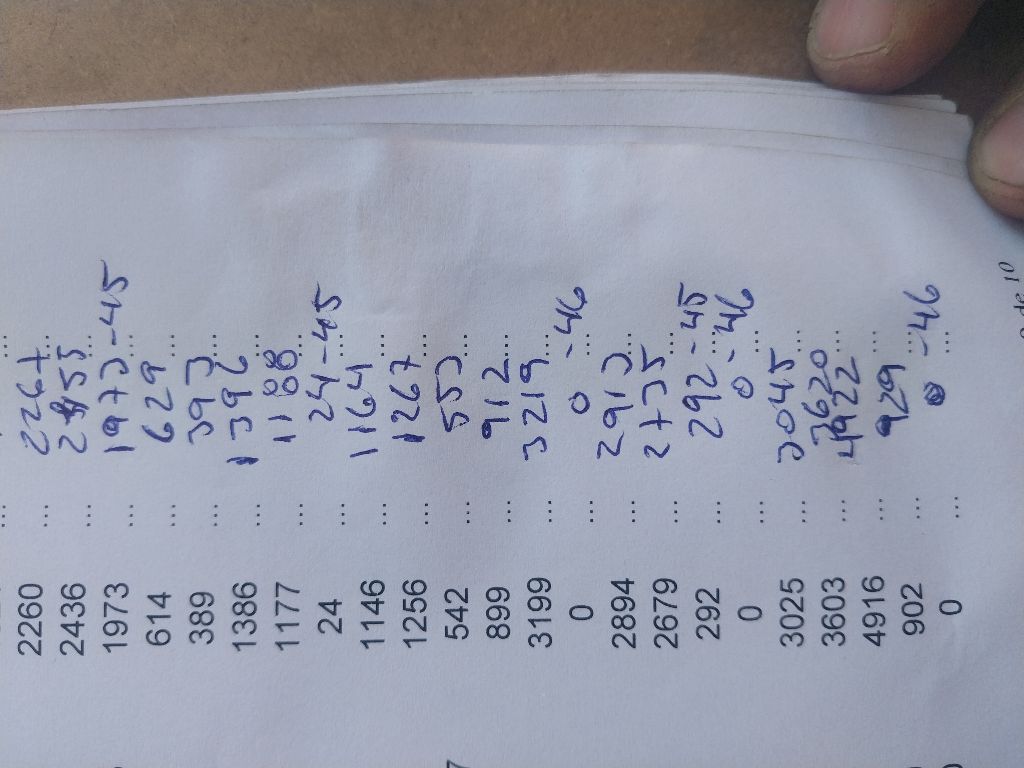 2260 ... 2267 ...
2436 ... 2455 ...
1973 ... 1973-45 ...
614 ... 629 ...
389 ... 393 ...
1386 ... 1396 ...
1177 ... 1188 ...
24 ... 24-45 ...
1146 ... 1164 ...
1256 ... 1267 ...
542 ... 553 ...
899 ... 912 ...
3199 ... 3219 ...
0 ... 0-46 ...
2894 ... 2913 ...
2679 ... 2735 ...
292 ... 292-45 ...
0 ... 0-46 ...
3025 ... 3045 ...
3603 ... 3620 ...
4916 ... 4922 ...
902 ... 929 ...
0 ... 0-46 ...
de 10